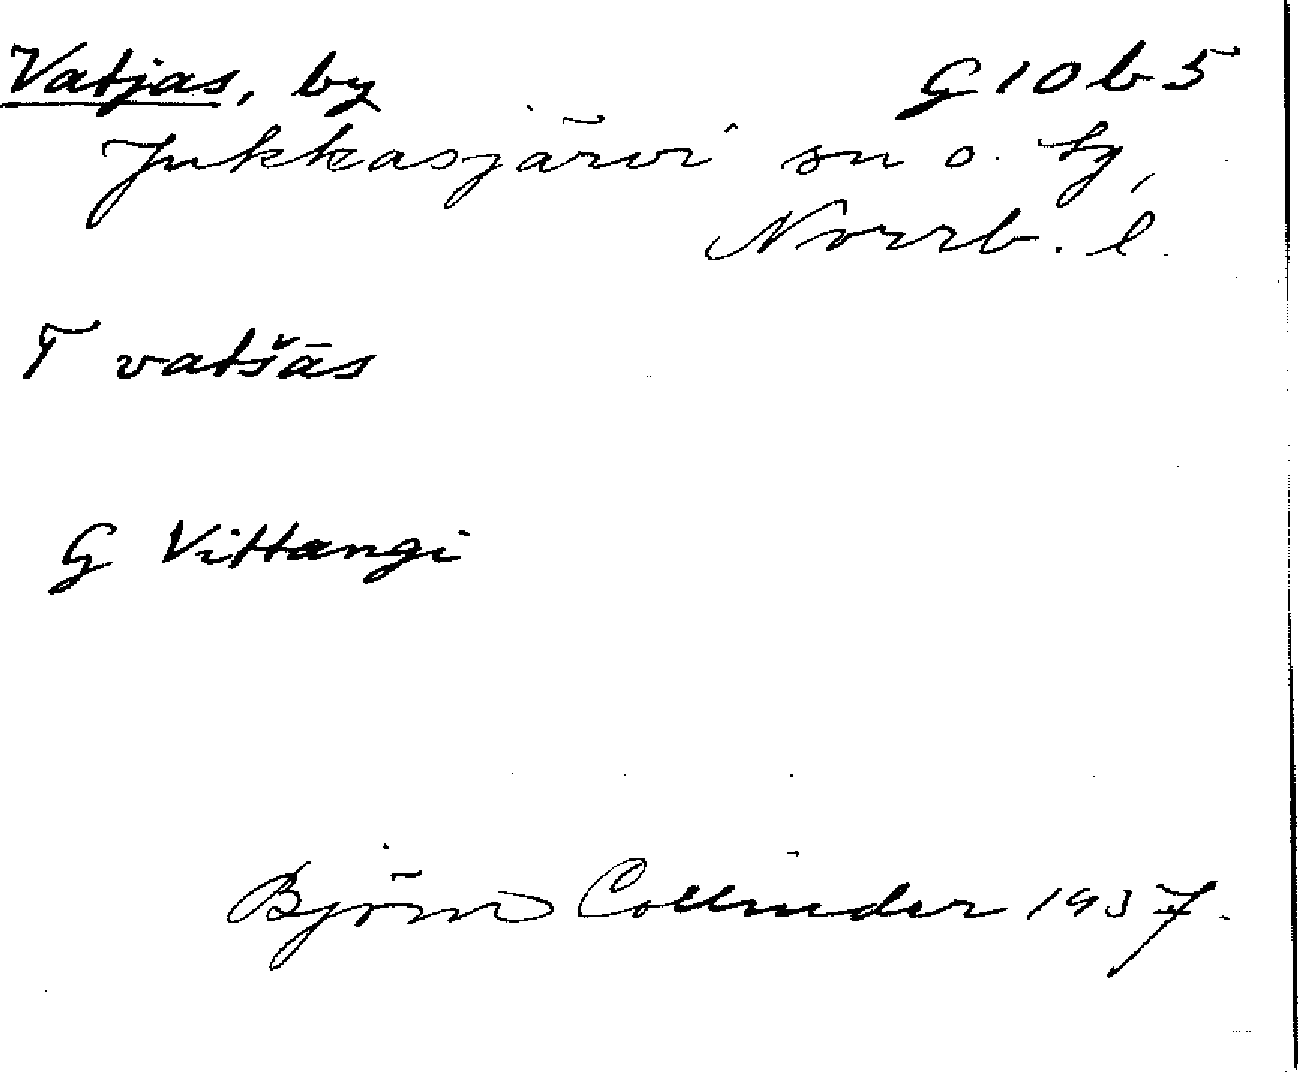 Vatjas, by G10b5
Jukkasjärvi sn o. tg,
Norrb. l.
T vatšās
G Vittangi
Björn Collinder 1937.